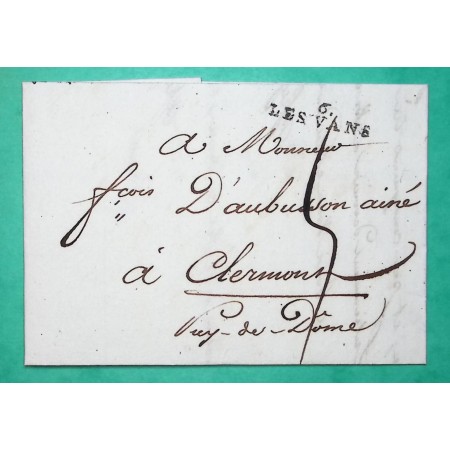 6
LES VANS
a Monsieur
fçois D'aubusson ainé
à Clermont
Puy-de-Dôme
5